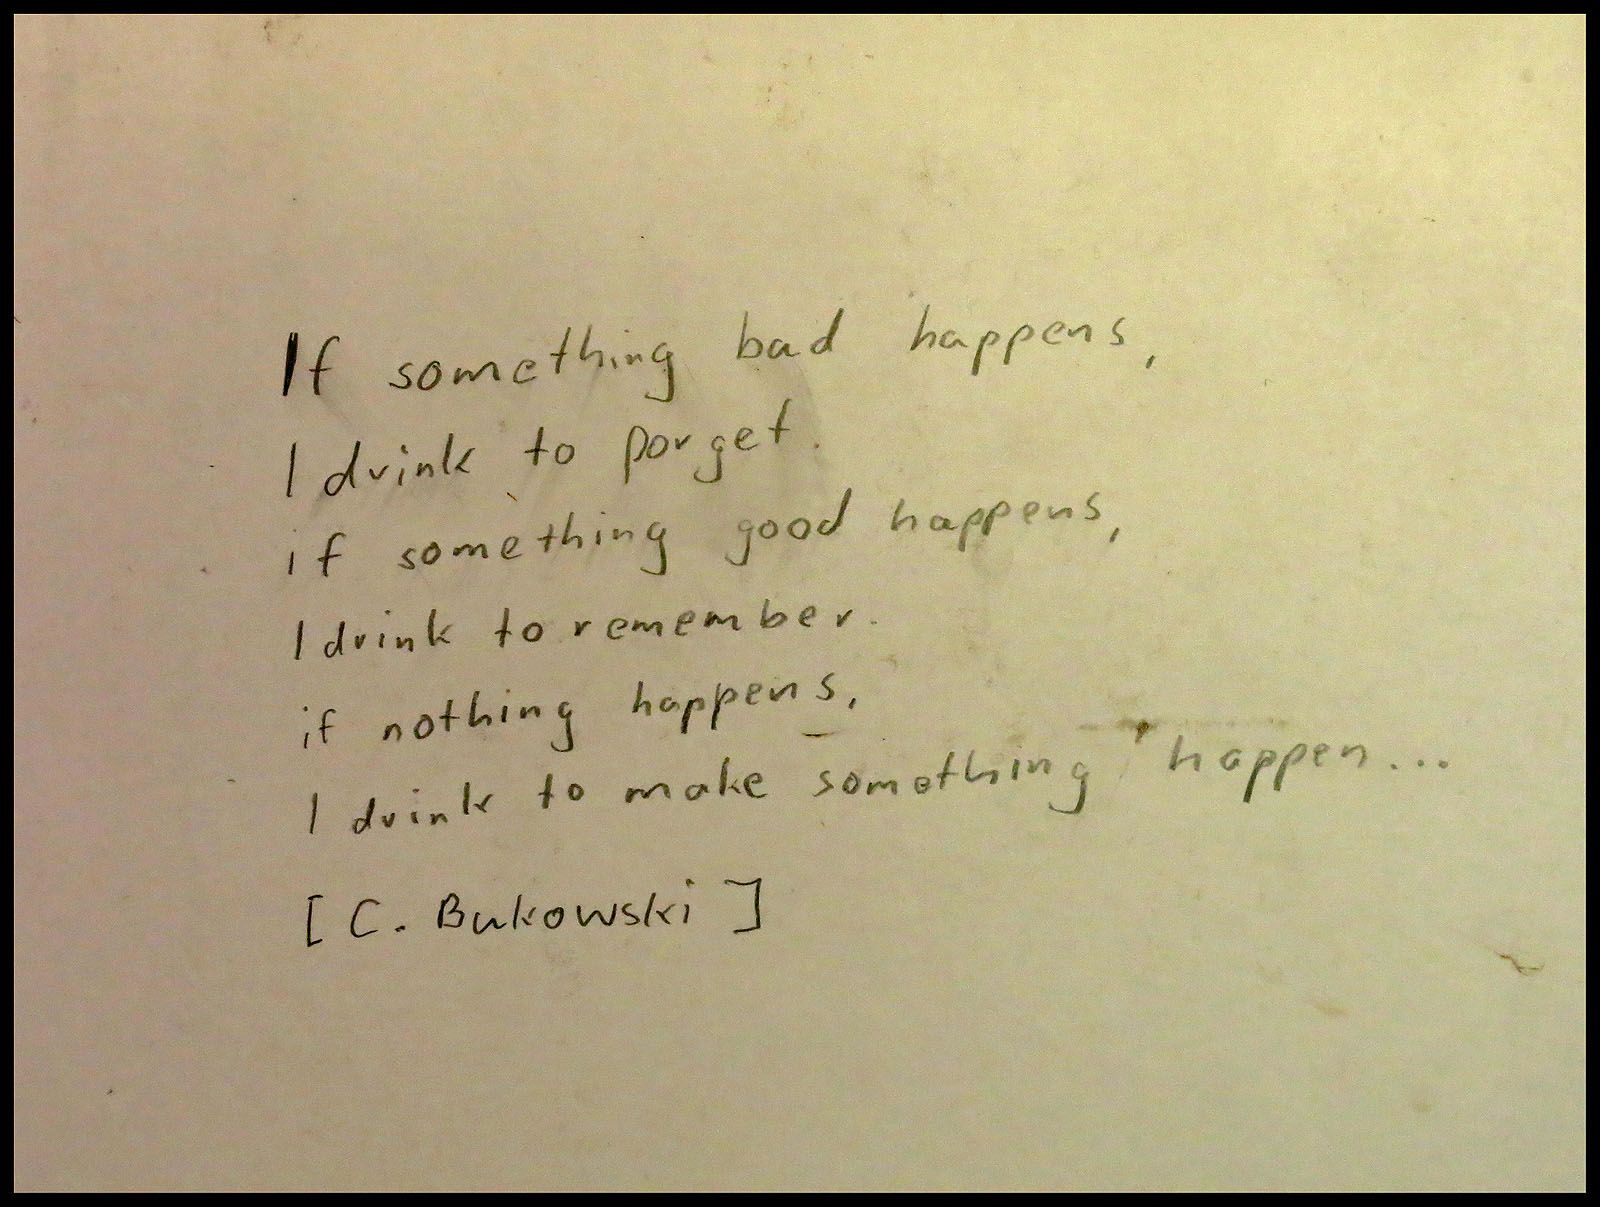 If something bad happens,
I drink to porget.
if something good happens,
I drink to remember.
if nothing happens,
I drink to make something happen...
[ C. Bukowski ]